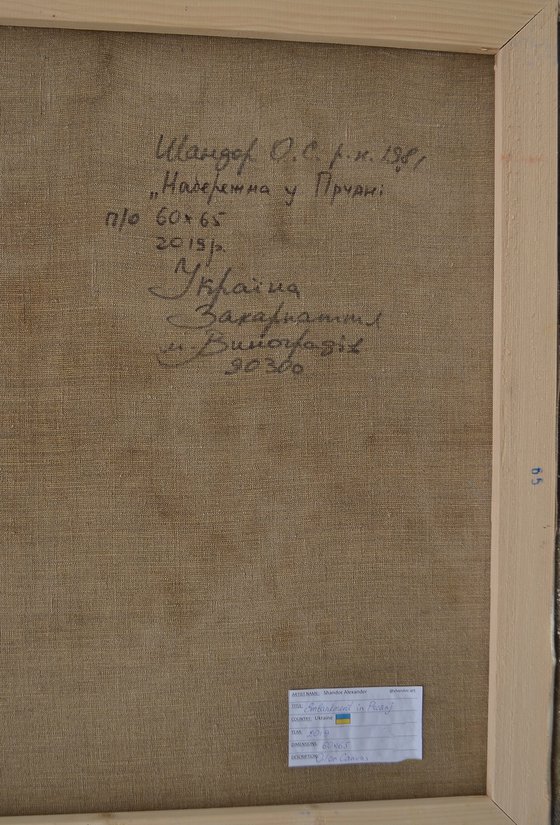 Шандор О.С. р.н. 1981
„Набережна у Прчані
п/о 60x65
2019р.
Україна
Закарпаття
м. Виноградів
90300
65
ARTIST NAME: Shandor Alexander
TITLE: Embankment in
COUNTRY: Ukraine
YEAR: 2019
DIMENSIONS: 60x65
DESCRIPTION: Canvas